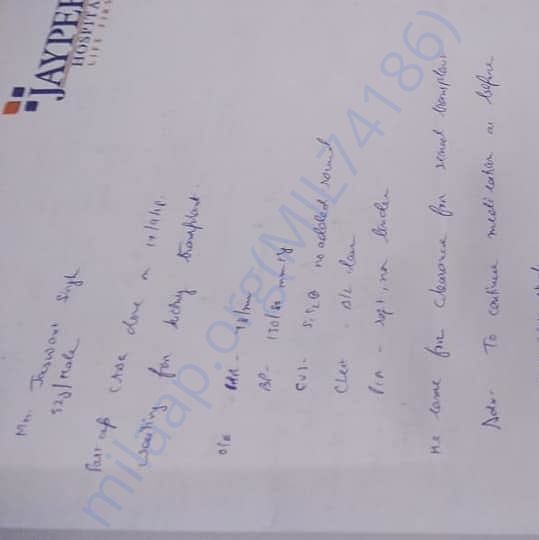 JAYPEE
HOSPITAL
LIFE FIRST
Mr. Jaswant Singh
52y/Male
Post op CABG done on
waiting for kidney transplant
O/E
BP - 130/80 mmHg
CVS - S1S2 no added sound
Chest - B/L clear
P/A - soft, non tender
He came for clearance for renal transplant
Adv - To continue medication as before
milaap.org(MIL74186)